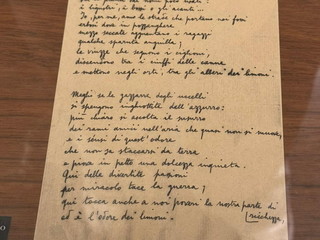 nomi poco usati:
bossi o gli acanti...
Io, per me, amo le strade che portano nei fossi
erbosi dove in pozzanghere
mezzo seccate agguantano i ragazzi
qualche sparuta anguilla;
le viuzze che seguono i ciglioni,
discendono tra i ciuffi delle canne
e mettono negli orti, tra gli alberi dei limoni.
Meglio se le gazzarre degli uccelli
si spengono inghiottite dall'azzurro:
più chiaro si ascolta il susurro
dei rami amici nell'aria che quasi non si muove,
e i sensi di quest'odore
che non sa staccarsi da terra
e piove in petto una dolcezza inquieta.
Qui delle divertite passioni
per miracolo tace la guerra;
qui tocca anche a noi poveri la nostra parte di
[ricchezza,
ed è l'odore dei limoni.
O